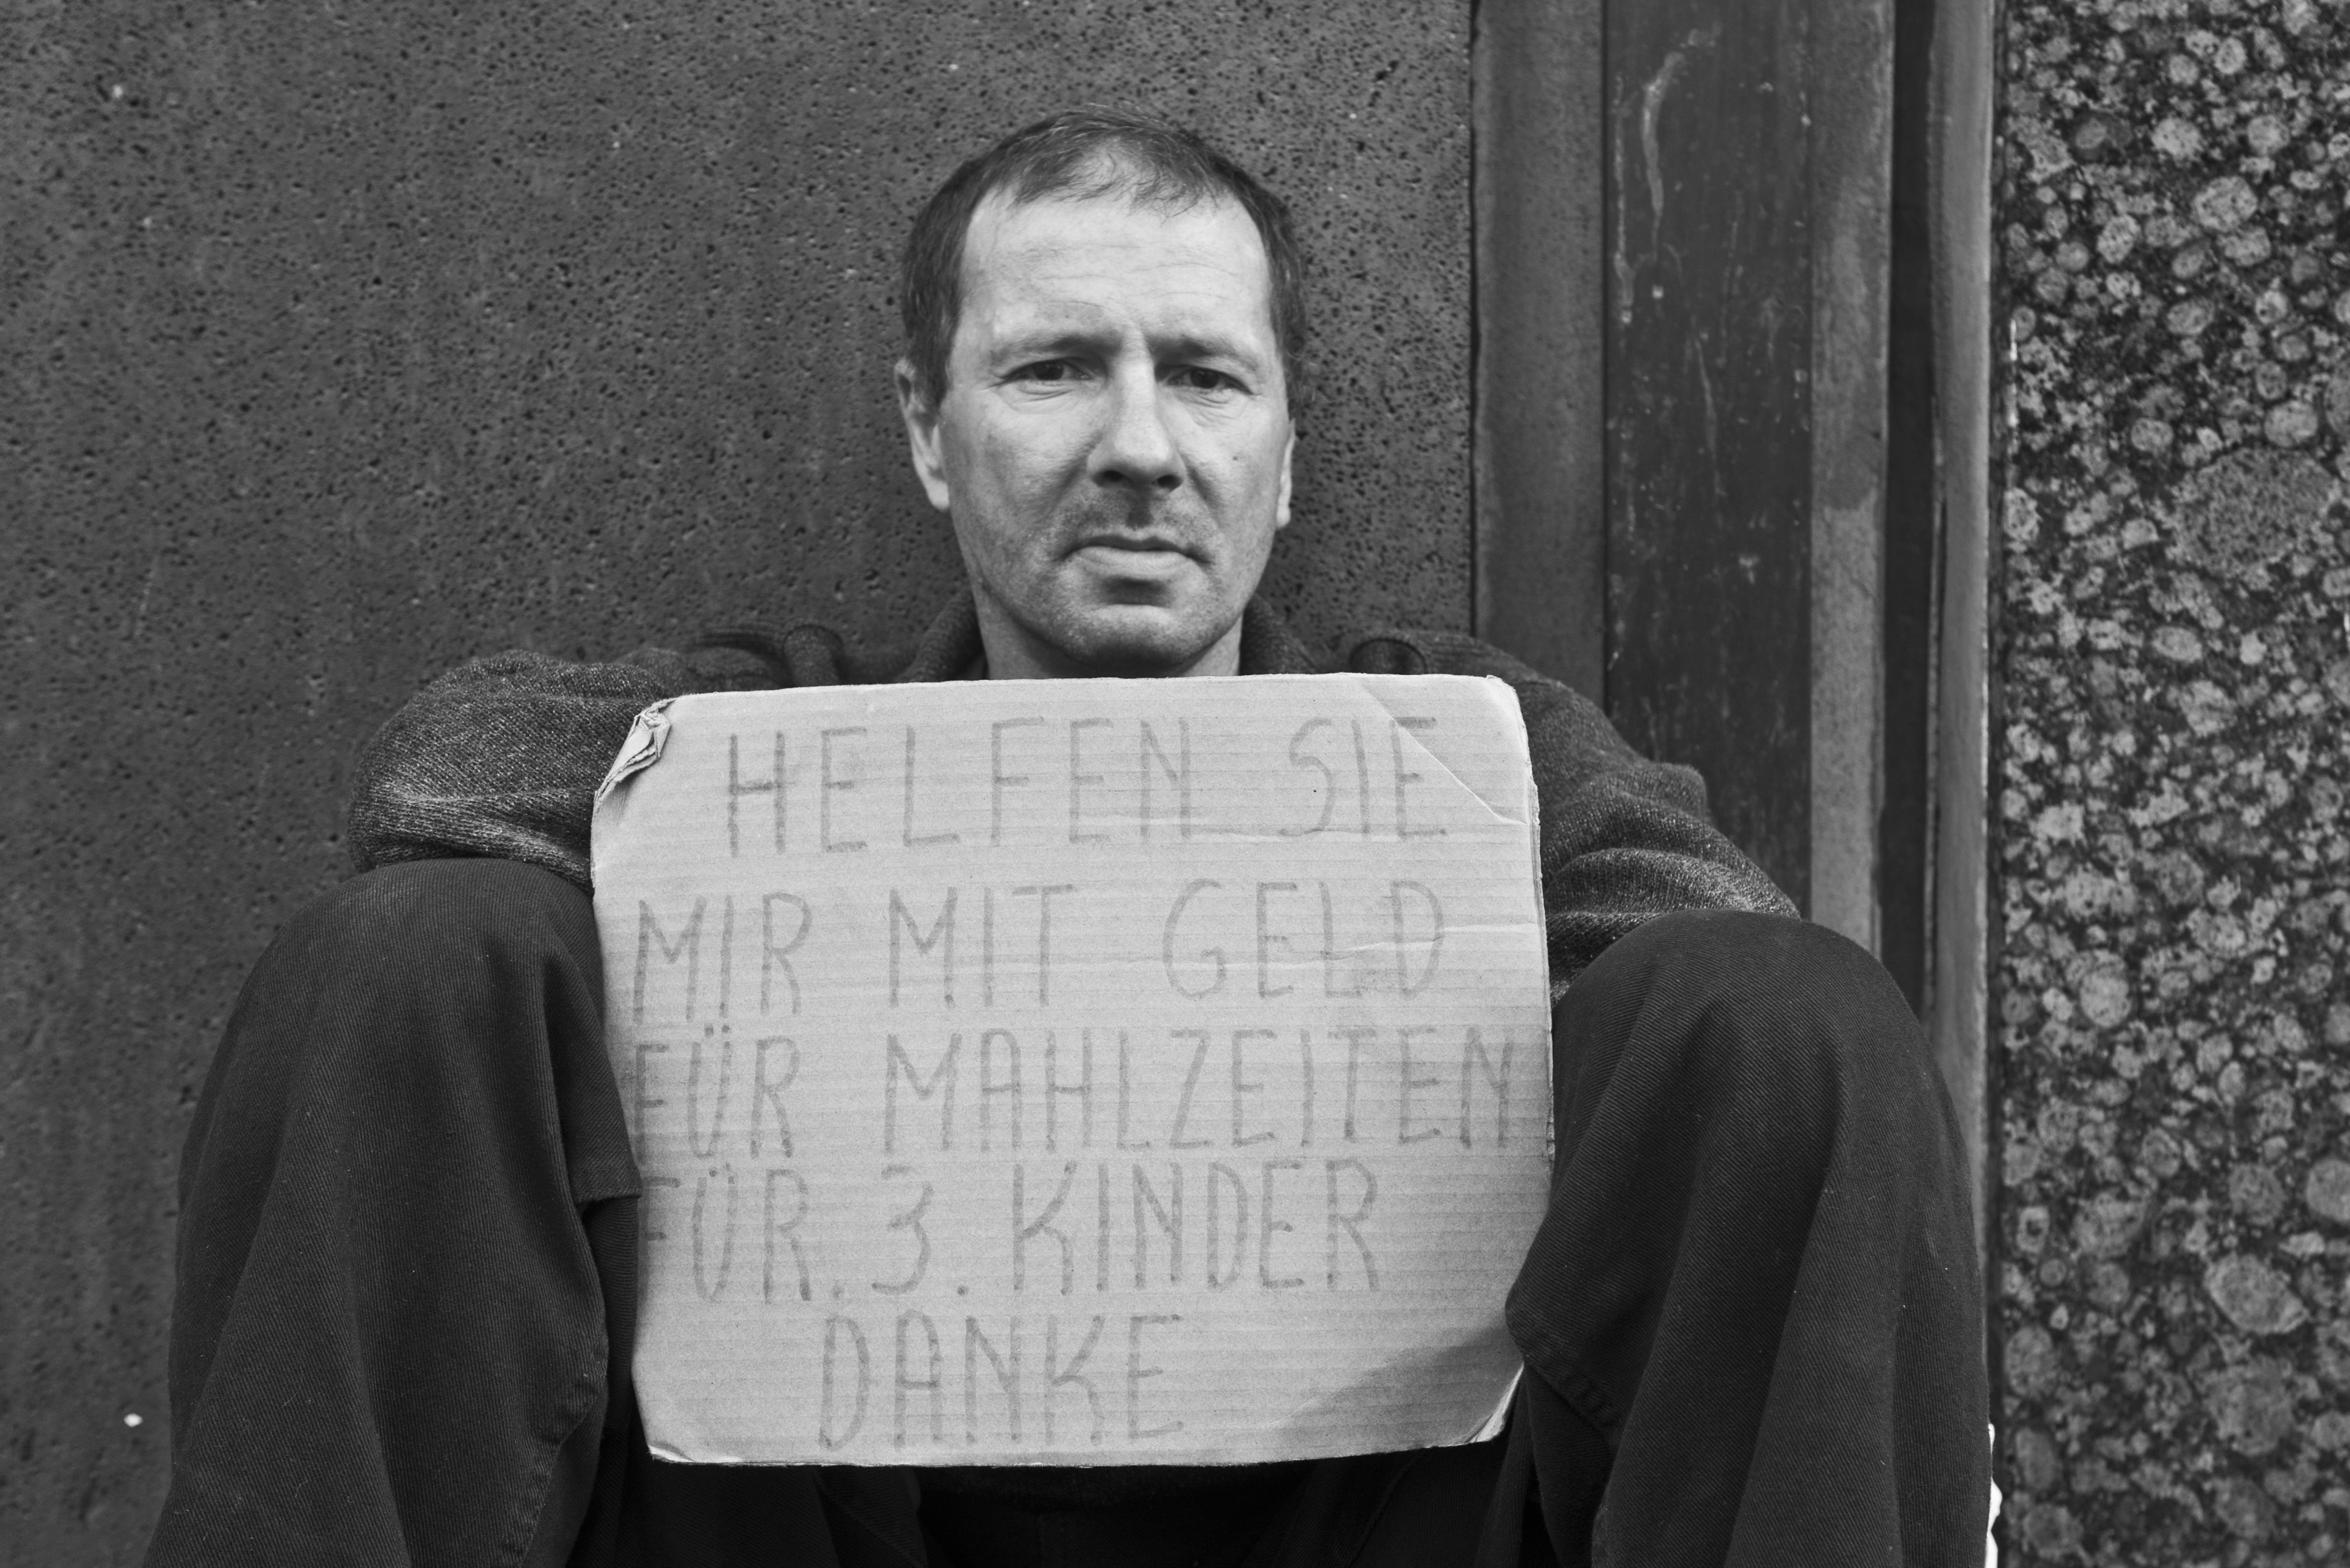 HELFEN SIE
MIR MIT GELD
FÜR MAHLZEITEN
FÜR.3.KINDER
DANKE